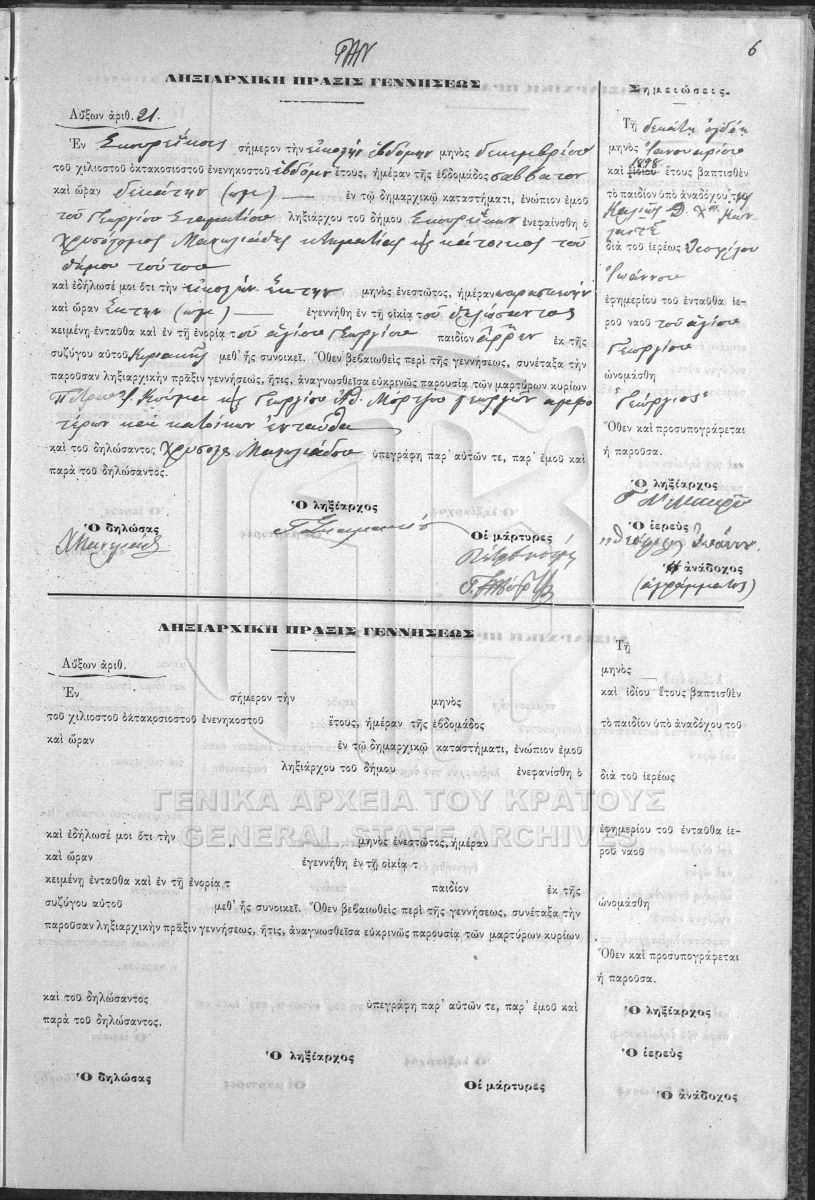 6
ΛΗΞΙΑΡΧΙΚΗ ΠΡΑΞΙΣ ΓΕΝΝΗΣΕΩΣ
Αὔξων ἀριθ. 21.
Ἐν σήμερον τὴν εἰκοστὴν ἑβδόμην μηνὸς δεκεμβρίου
τοῦ χιλιοστοῦ ὀκτακοσιοστοῦ ἐνενηκοστοῦ ἑβδόμου ἔτους, ἡμέραν τῆς ἑβδομάδος σάββατον
καὶ ὥραν δεκάτην ἐν τῷ δημαρχικῷ καταστήματι, ἐνώπιον ἐμοῦ
τοῦ Γεωργίου ληξιάρχου τοῦ δήμου ἐνεφανίσθη ὁ
κτηματίας κάτοικος τοῦ
δήμου τούτου
καὶ ἐδήλωσέ μοι ὅτι τὴν εἰκοστὴν ἕκτην μηνὸς ἐνεστῶτος, ἡμέραν παρασκευὴν
καὶ ὥραν ἕκτην ἐγεννήθη ἐν τῇ οἰκίᾳ τοῦ δηλώσαντος
κειμένῃ ἐνταῦθα καὶ ἐν τῇ ἐνορίᾳ τοῦ ἁγίου Γεωργίου παιδίον ἄρρεν ἐκ τῆς
συζύγου αὐτοῦ Κυριακῆς μεθ' ἧς συνοικεῖ. Ὅθεν βεβαιωθεὶς περὶ τῆς γεννήσεως, συνέταξα τὴν
παροῦσαν ληξιαρχικὴν πρᾶξιν γεννήσεως, ἥτις, ἀναγνωσθεῖσα εὐκρινῶς παρουσίᾳ τῶν μαρτύρων κυρίων
Γεωργίου γεωργῶν ἀμφο
τέρων καὶ κατοίκων ἐνταῦθα
καὶ τοῦ δηλώσαντος ὑπεγράφη παρ' αὐτῶν τε, παρ' ἐμοῦ καὶ
παρὰ τοῦ δηλώσαντος.
Ὁ ληξίαρχος
Ὁ δηλώσας
Οἱ μάρτυρες
Σημειώσεις.
Τῇ δεκάτῃ ὀγδόῃ
μηνὸς Ἰανουαρίου
1898
καὶ ἰδίου ἔτους βαπτισθὲν
τὸ παιδίον ὑπὸ ἀναδόχου τῆς
διὰ τοῦ ἱερέως
Ἰωάννου
ἐφημερίου τοῦ ἐνταῦθα ἱε-
ροῦ ναοῦ τοῦ ἁγίου
Γεωργίου
ὠνομάσθη
Γεώργιος
Ὅθεν καὶ προσυπογράφεται
ἡ παροῦσα.
Ὁ ληξίαρχος
Ὁ ἱερεὺς
Ὁ ἀνάδοχος
(ἀγράμματος)
ΛΗΞΙΑΡΧΙΚΗ ΠΡΑΞΙΣ ΓΕΝΝΗΣΕΩΣ
Αὔξων ἀριθ.
Ἐν σήμερον τὴν μηνὸς
τοῦ χιλιοστοῦ ὀκτακοσιοστοῦ ἐνενηκοστοῦ ἔτους, ἡμέραν τῆς ἑβδομάδος
καὶ ὥραν ἐν τῷ δημαρχικῷ καταστήματι, ἐνώπιον ἐμοῦ
ληξιάρχου τοῦ δήμου ἐνεφανίσθη ὁ
καὶ ἐδήλωσέ μοι ὅτι τὴν μηνὸς ἐνεστῶτος, ἡμέραν
καὶ ὥραν ἐγεννήθη ἐν τῇ οἰκίᾳ τ
κειμένῃ ἐνταῦθα καὶ ἐν τῇ ἐνορίᾳ τ παιδίον ἐκ τῆς
συζύγου αὐτοῦ μεθ' ἧς συνοικεῖ. Ὅθεν βεβαιωθεὶς περὶ τῆς γεννήσεως, συνέταξα τὴν
παροῦσαν ληξιαρχικὴν πρᾶξιν γεννήσεως, ἥτις, ἀναγνωσθεῖσα εὐκρινῶς παρουσίᾳ τῶν μαρτύρων κυρίων
καὶ τοῦ δηλώσαντος ὑπεγράφη παρ' αὐτῶν τε, παρ' ἐμοῦ καὶ
παρὰ τοῦ δηλώσαντος.
Ὁ ληξίαρχος
Ὁ δηλώσας
Οἱ μάρτυρες
Τῇ
μηνὸς
καὶ ἰδίου ἔτους βαπτισθὲν
τὸ παιδίον ὑπὸ ἀναδόχου τοῦ
διὰ τοῦ ἱερέως
ἐφημερίου τοῦ ἐνταῦθα ἱε-
ροῦ ναοῦ
ὠνομάσθη
Ὅθεν καὶ προσυπογράφεται
ἡ παροῦσα.
Ὁ ληξίαρχος
Ὁ ἱερεὺς
Ὁ ἀνάδοχος
ΓΕΝΙΚΑ ΑΡΧΕΙΑ ΤΟΥ ΚΡΑΤΟΥΣ
GENERAL STATE ARCHIVES